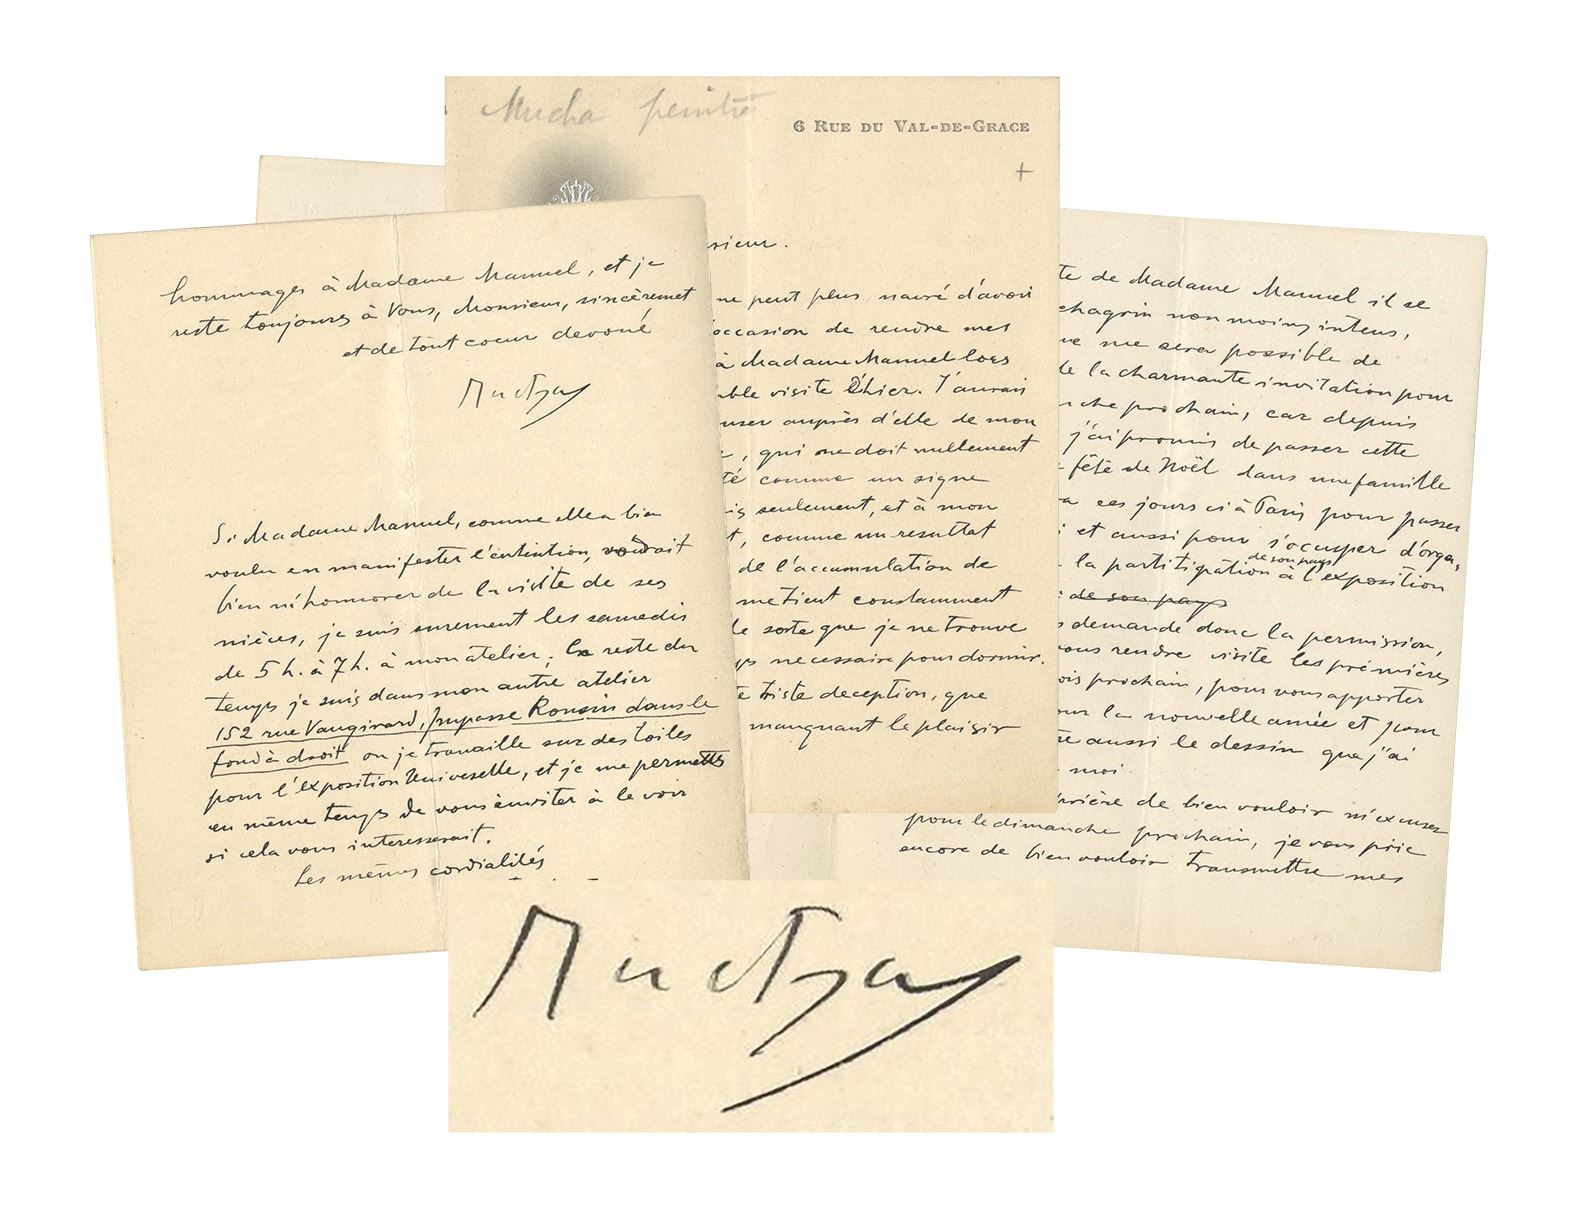 Mucha peintre
6 RUE DU VAL-DE-GRACE
+
sieur.
ne peut plus navré d'avoir
occasion de rendre mes
à Madame Manuel lors
able visite d'hier. J'aurais
user auprès d'elle de mon
, qui ne doit nullement
té comme un signe
is seulement, et à mon
t, comme un resultat
de l'accumulation de
me tient constamment
le sorte que je ne trouve
ps necessaire pour dormir.
te triste deception, que
manquant le plaisir
te de Madame Manuel il se
chagrin non moins intens,
ne me sera possible de
de la charmante invitation pour
nche prochain, car depuis
j'ai promis de passer cette
fête de Noël dans une famille
a ces jours ci à Paris pour passer
i et aussi pour s'occuper d'orga,
de son pays
la partitipation à l'exposition
de son pays
s demande donc la permission,
vous rendre visite les prémières
ois prochain, pour vous apporter
our la nouvelle année et pour
re aussi le dessin que j'ai
moi
prière de bien vouloir m'excuser
pour le dimanche prochain, je vous prie
encore de bien vouloir transmettre mes
hommages à Madame Manuel, et je
reste toujours à Vous, Monsieur, sincèremet
et de tout coeur devoué
Mucha
Si Madame Manuel, comme elle a bien
voulu en manifester l'entention, voudrait
bien m'honnorer de la visite de ses
nièces, je suis surement les samedis
de 5 h. à 7 h. à mon atelier, le reste du
temps je suis dans mon autre atelier
152 rue Vaugirard, Impasse Ronsin dans le
fond à droit ou je travaille sur des toiles
pour l'exposition Universelle, et je me permetts
en même temps de vous inviter à le voir
si cela vous interesserait.
Les mêmes cordialités
Mucha